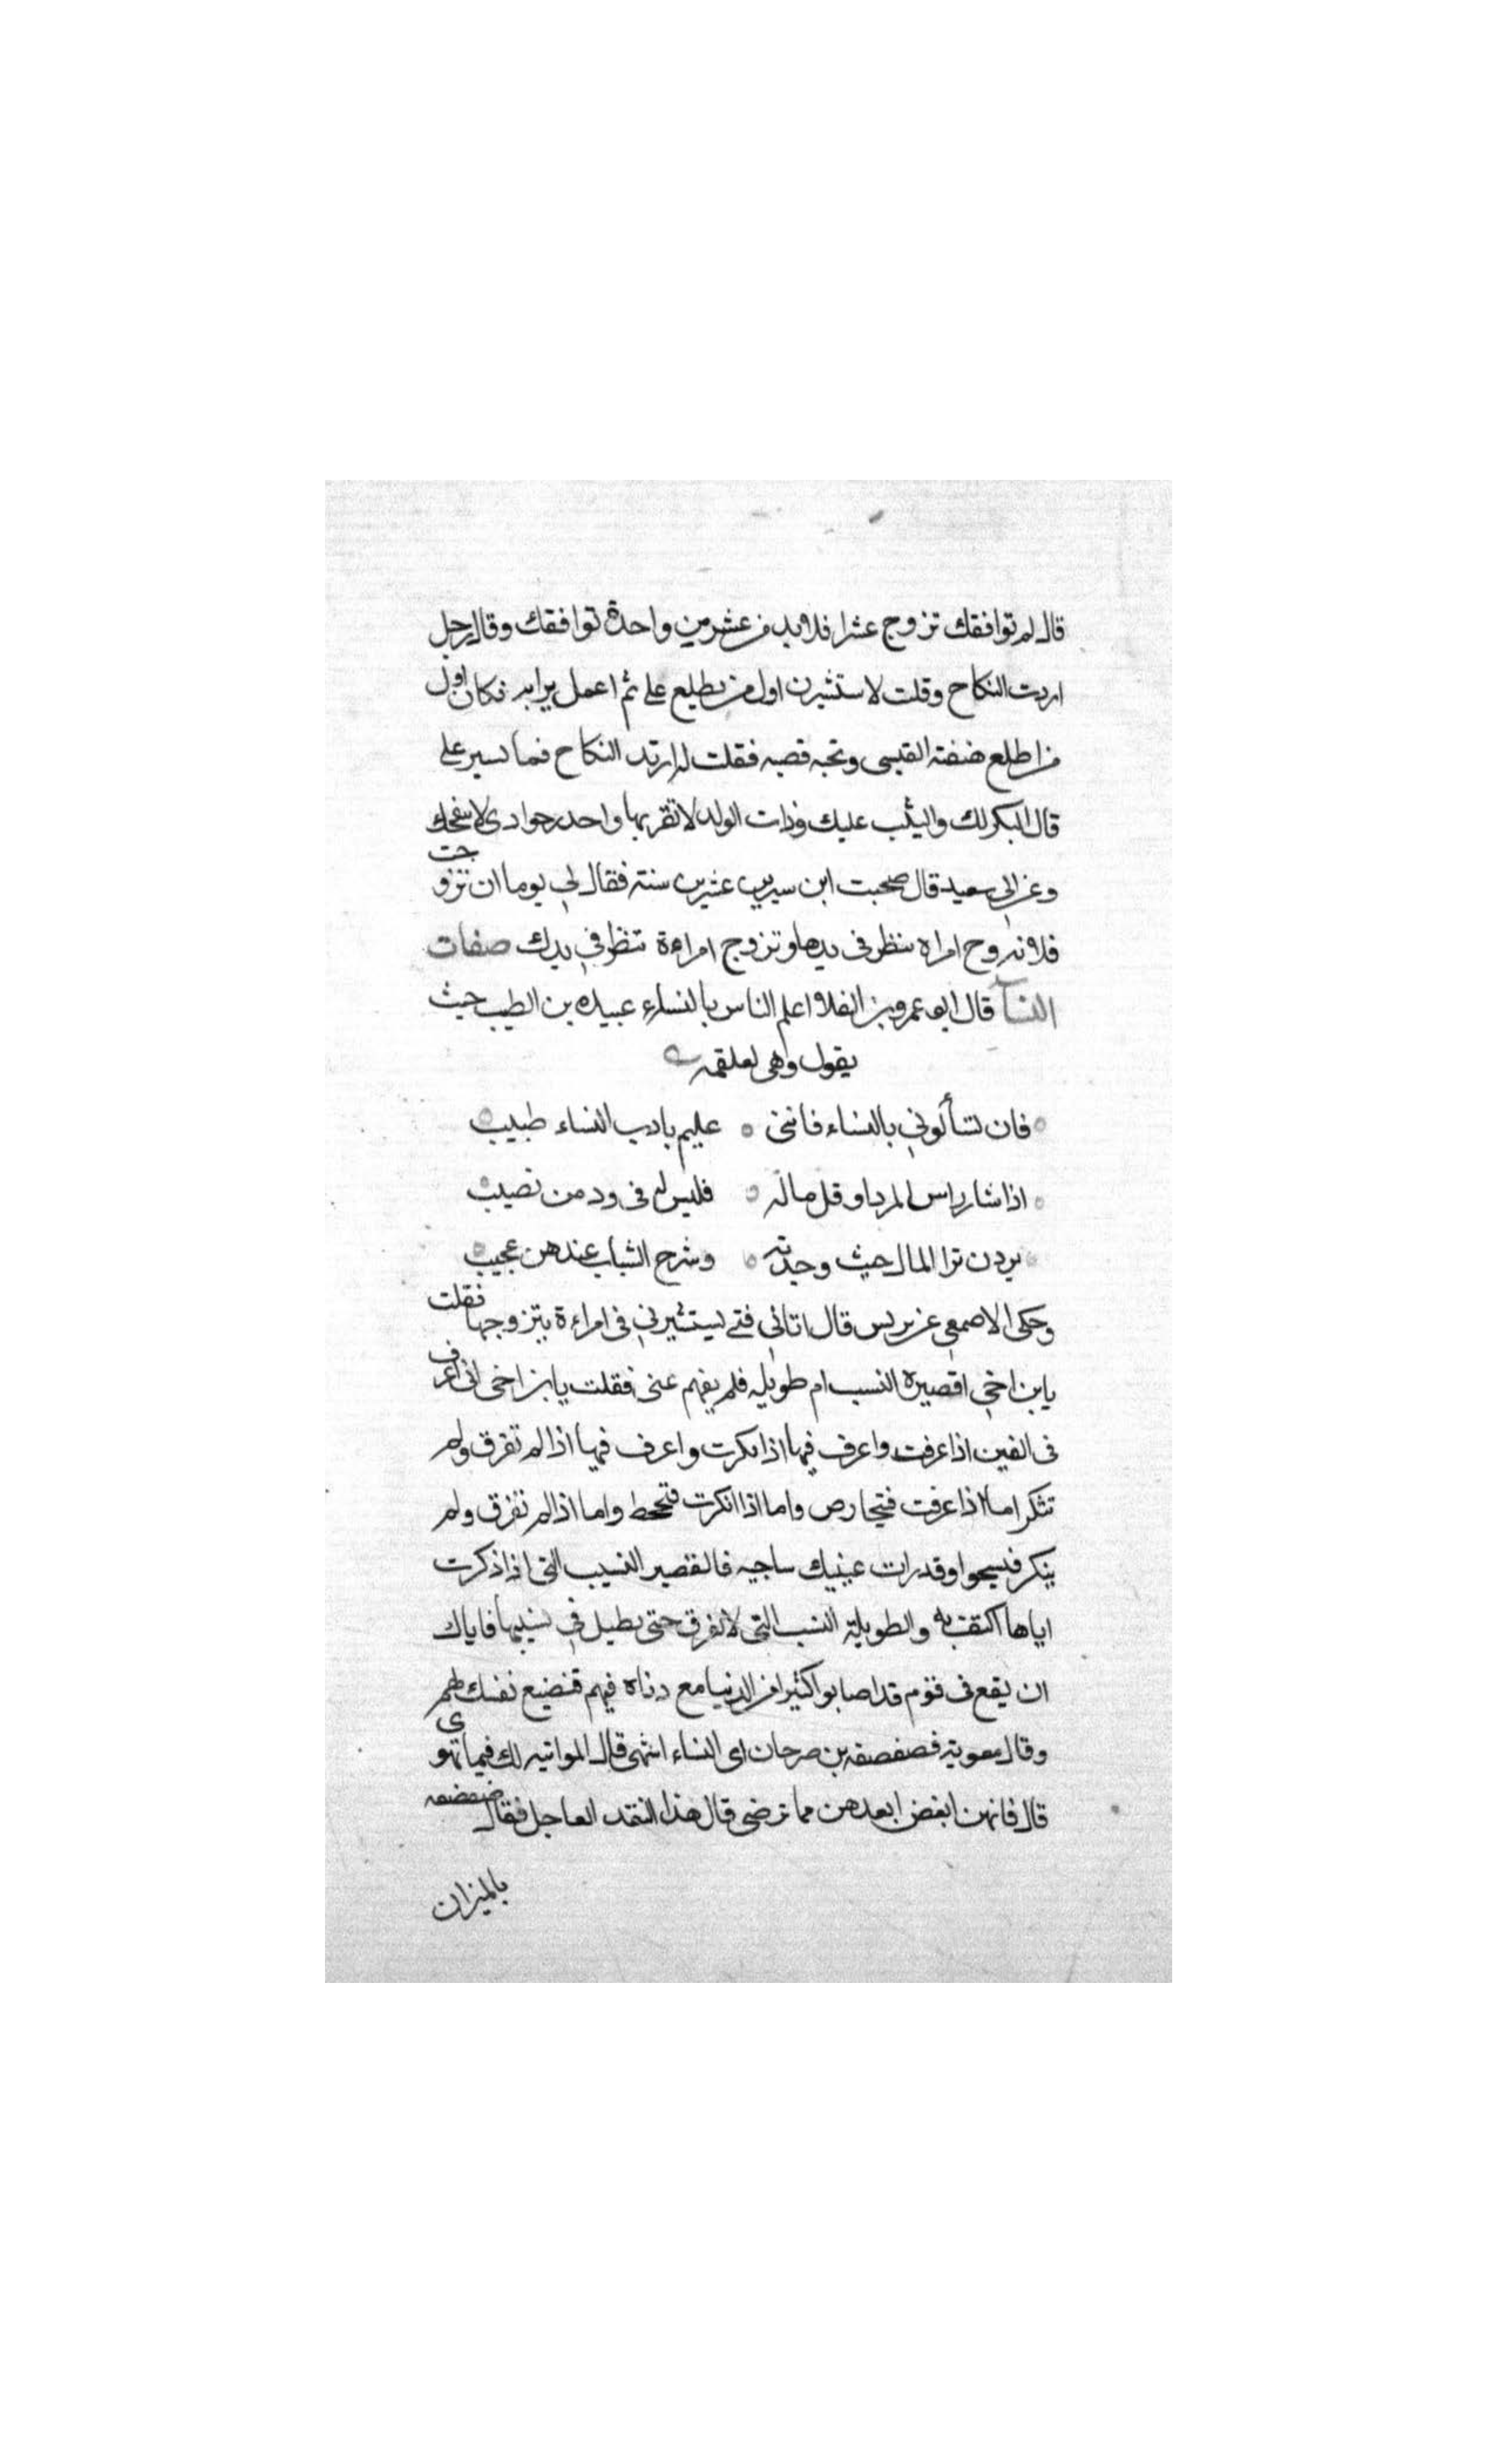 قال لم توافقك تزوج عشرا فلابد من عشرين واحدة توافقك وقال رجل
اردت النكاح وقلت لاستشيرن اول من يطلع على ثم اعمل برايه فكان اول
من اطلع هنفته القيسى وتحته قصبه فقلت له اريد النكاح فما تسير على
قال البكر لك والثيب عليك وذات الولد لا تقربها واحدر جوادى لا ينفحك
وعن ابى سعيد قال صحبت ابن سيرين عشرين سنة فقال لى يوما ان تزوجت
فلا تزوج امراه تنظر فى يدها وتزوج امراءة تنظر فى يدك صفات
النساء قال ابو عمرو بن العلا اعلم الناس بالنساء عبيده بن الطيب حيث
يقول وهى لعلقمه
فان تسألونى بالنساء فاننى ٥ عليم بادب النساء طبيب
اذا شار راس المرء او قل ماله ٥ فليس له فى ود من نصيب
يردن ترا المال حيث وجدته ٥ وشرح الشباب عندهن عجيب
وحكى الاصمعى عن يرىس قال اتانى فتى يستشيرنى فى امراءة يتزوجها فقلت
يابن اخى اقصيرة النسب ام طويله فلم يفهم عنى فقلت يا بن اخى انى اعرف
فى العين اذا عرفت واعرف فيها اذا نكرت واعرف فيها اذا لم تفرق ولم
تنكر اما اذا عرفت فتيحارص واما اذا انكرت فتجحظ واما اذا لم تفرق ولم
ينكر فسيحوا وقد رات عينيك ساجيه فالقصير النسيب التى اذا ذكرت
اياها اكتفت به والطويلة النسب التى لا تفرق حتى يطيل فى نسبها فاياك
ان يقع فى قوم قد اصابوا كثيرا من الدنيا مع دناه فيهم فتضيع نفسك فيهم
وقال معوية فصفصفه بن صرحان اى النساء اشهى قال المواتيه لك فيما تهوى
قال فانهن ابغض ابعدهن مما ترضى قال هذا النقد العاجل فقال صفصفه
بالميزان